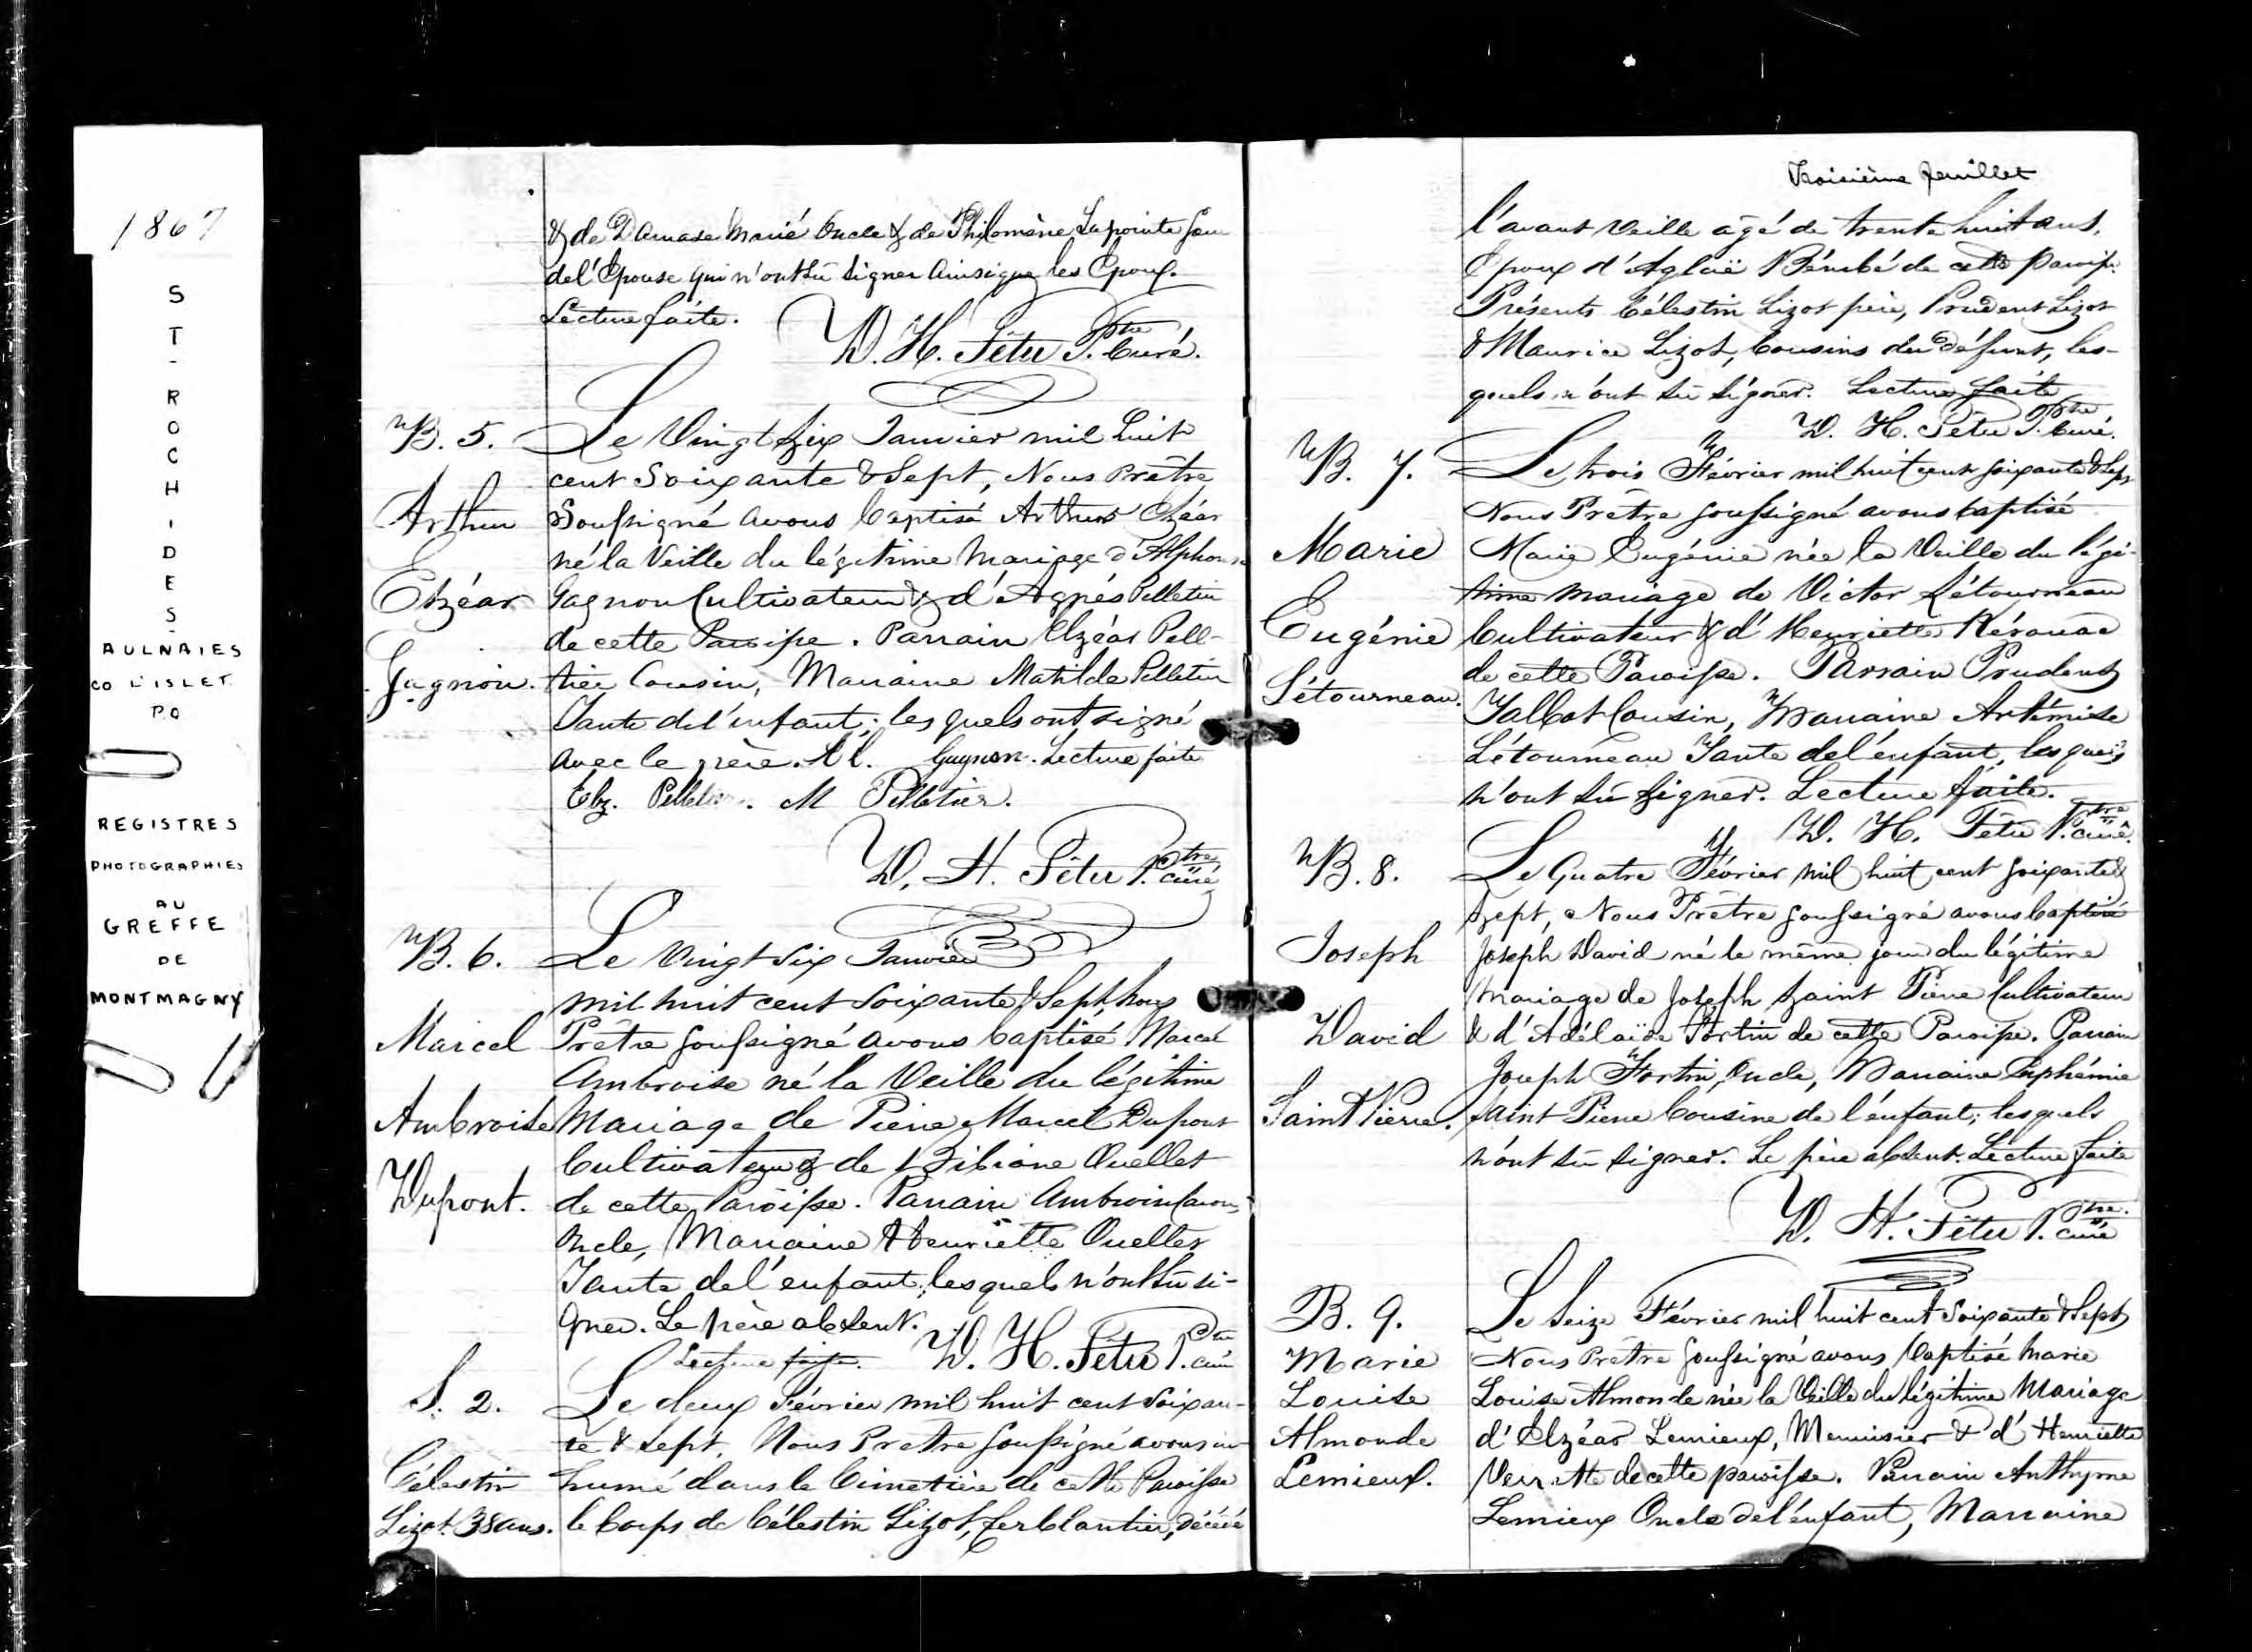 1867
ST-ROCH-DES-
AULNAIES
CO L'ISLET
P.Q
REGISTRES
PHOTOGRAPHIES
AU
GREFFE
DE
MONTMAGNY
& de Damase Marié Oncle & de Philomène Lapointe
de l'Epouse qui n'ont su signer ainsique les Epoux.
Lecture faite.
D. H. Têtu Ptre Curé.
B. 5.
Arthur
Elzéar
Gagnon.
Le Vingt six Janvier mil huit
cent Soixante & Sept, Nous Prêtre
Soussigné avons baptisé Arthur Elzéar
né la Veille du légitime Mariage d'Alphonse
Gagnon Cultivateur & d'Agnés Pelletier
de cette Paroisse. Parrain Elzéar Pell-
tier Cousin, Marraine Matilde Pelletier
Tante de l'enfant; les quels ont signé
avec le père. Al. Gagnon. Lecture faite
Elz. Pelletier. M Pelletier.
D. H. Têtu Ptre curé
B. 6.
Marcel
Ambroise
Dupont.
Le Vingt Six Janvier
mil huit cent Soixante & Sept, Nous
Prêtre Soussigné avons baptisé Marcel
Ambroise né la Veille du légitime
Mariage de Pierre Marcel Dupont
Cultivateur & de Bibiane Ouellet
de cette Paroisse. Parrain Ambroise Caron
Oncle, Marraine Henriette Ouellet
Tante de l'enfant; lesquels n'ont su si-
gner. Le père absent.
Lecture faite. D. H. Têtu Ptre curé
S. 2.
Célestin
Lizot 38 ans.
Le deux Février mil huit cent Soixan-
te & Sept, Nous Prêtre Soussigné avons in-
humé dans le Cimetière de cette Paroisse
le Corps de Célestin Lizot, ferblantier, décédé
Troisième feuillet
l'avant Veille agé de trente huit ans,
Epoux d'Aglaë Bérubé de cette paroisse.
Présents Célestin Lizot père, Prudent Lizot
& Maurice Lizot, Cousins du Défunt, les-
quels n'ont su signer. Lecture faite
D. H. Têtu Ptre Curé.
B. 7.
Marie
Eugénie
Létourneau.
Le trois Février mil huit cent soixante & Sept
Nous Prêtre soussigné avons baptisé
Marie Eugénie née la Veille du légi-
time mariage de Victor Létourneau
Cultivateur & d'Henriette Kérouac
de cette Paroisse. Parrain Prudent
Talbot Cousin, Marraine Artémise
Létourneau Tante de l'enfant, lesquels
n'ont su signer. Lecture faite.
D. H. Têtu Ptre curé.
B. 8.
Joseph
David
Saint Pierre.
Le Quatre Février mil huit cent soixante &
Sept, Nous Prêtre soussigné avons baptisé
Joseph David né le même jour du légitime
mariage de Joseph Saint Pierre Cultivateur
& d'Adélaïde Fortin de cette Paroisse. Parrain
Joseph Fortin Oncle, Marraine Euphémie
Saint Pierre Cousine de l'enfant; lesquels
n'ont su signer. Le père absent. Lecture faite
D. H. Têtu Ptre. curé
B. 9.
Marie
Louise
Almonde
Lemieux.
Le Seize Février mil huit cent Soixante & Sept
Nous Prêtre soussigné avons baptisé Marie
Louise Almonde née la Veille du légitime Mariage
d'Elzéar Lemieux, Menuisier & d'Henriette
Verrette de cette paroisse. Parrain Anthyme
Lemieux Oncle de l'enfant, Marraine